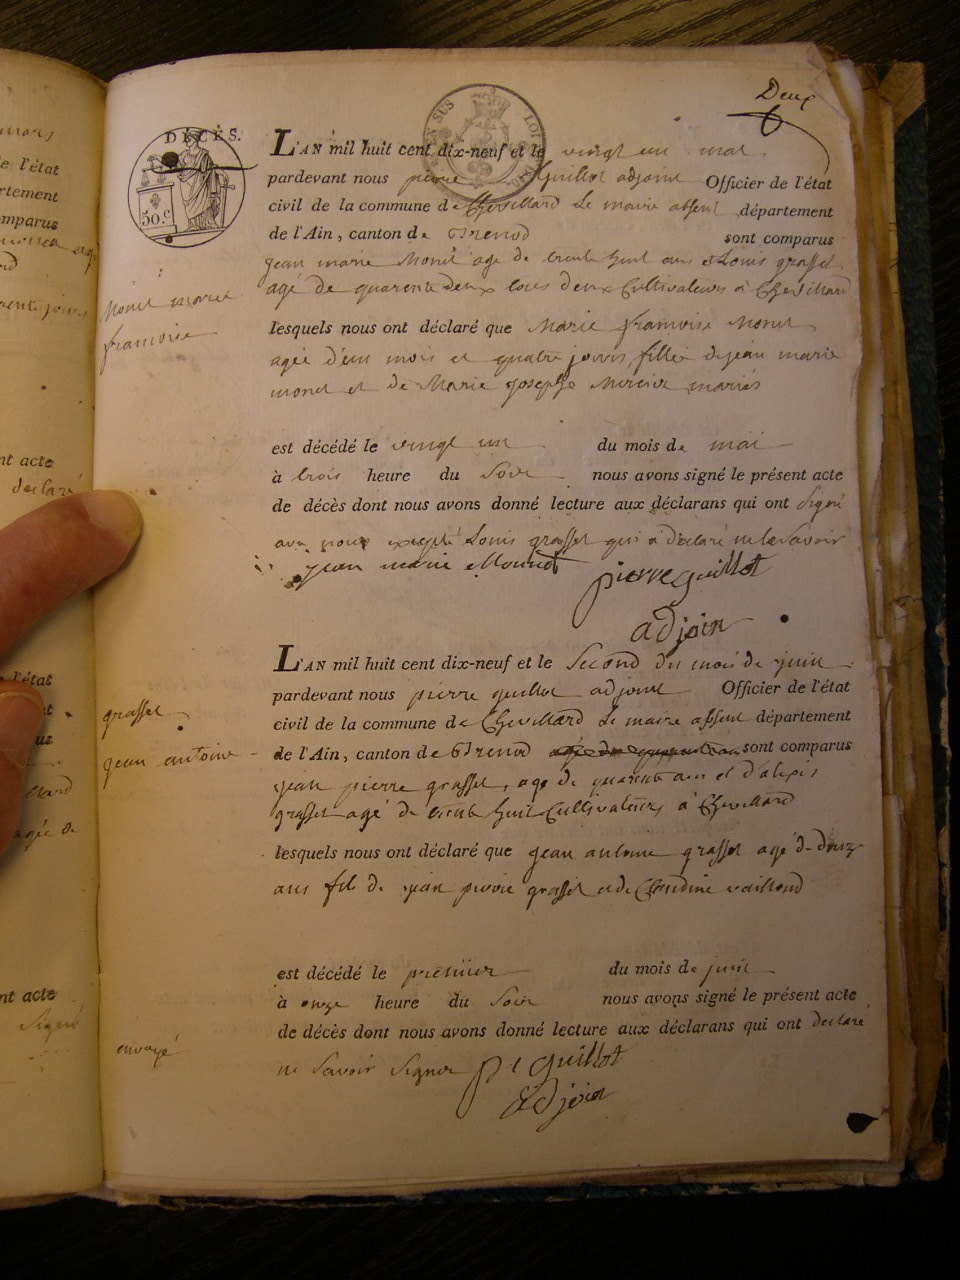 Deux
6
DÉCÈS.
EN SUS
LOI
1816
50.c
L'AN mil huit cent dix-neuf et le vingt un mai
pardevant nous pierre Guillot adjoint Officier de l'état
civil de la commune de Chevillard Le maire absent département
de l'Ain, canton de Brenod sont comparus
jean marie Monet agé de trente huit ans et Louis grasset
agé de quarente deux tous deux Cultivateurs à Chevillard
Monet marie
francoise
lesquels nous ont déclaré que Marie francoise Monet
agée d'un mois et quatre jours, fillée de jean marie
monet et de Marie josephe Mercier mariés
est décédé le vingt un du mois de mai
à trois heure du Soir nous avons signé le présent acte
de décès dont nous avons donné lecture aux déclarans qui ont Signé
avec nous excepté Louis grasset qui a déclaré ne le savoir
jean marie Mounet pierre guillot
adjoin
L'AN mil huit cent dix-neuf et le Second du mois de juin
pardevant nous pierre guillot adjoint Officier de l'état
grasset
civil de la commune de Chevillard Le maire absent département
jean antoine
de l'Ain, canton de Brenod sont comparus
jean pierre grasset, agé de quarente ans et d'alexis
grasset agé de trente huit Cultivateurs à Chevillard
lesquels nous ont déclaré que jean antoine grasset agé de douze
ans fils de jean pierre grasset et de Claudine vaillond
est décédé le premier du mois de juin
à onze heure du Soir nous avons signé le présent acte
de décès dont nous avons donné lecture aux déclarans qui ont declaré
envoyé
ne Savoir Signer pe Guillot
adjoin